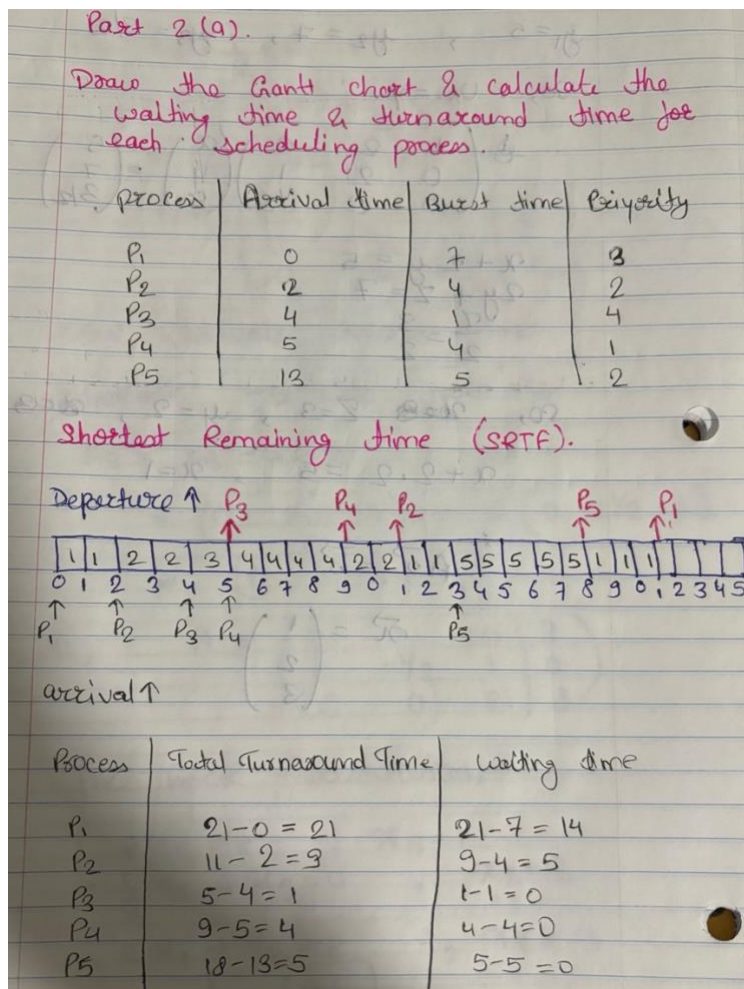 Part 2 (a).
Draw the Gantt chart & calculate the
waiting time & turnaround time for
each scheduling process.
Process | Arrival time | Burst time | Priyority
P1 0 7 3
P2 2 4 2
P3 4 1 4
P4 5 4 1
P5 13 5 2
Shortest Remaining time (SRTF).
Departure ↑ P3 P4 P2 P5 P1
1 1 2 2 3 4 4 4 4 2 2 1 1 5 5 5 5 5 1 1 1
0 1 2 3 4 5 6 7 8 9 0 1 2 3 4 5 6 7 8 9 0 1 2 3 4 5
P1 P2 P3 P4 P5
arrival ↑
Process | Total Turnaround Time | waiting time
P1 21-0 = 21 21-7 = 14
P2 11-2 = 9 9-4 = 5
P3 5-4 = 1 1-1 = 0
P4 9-5 = 4 4-4=0
P5 18-13=5 5-5=0